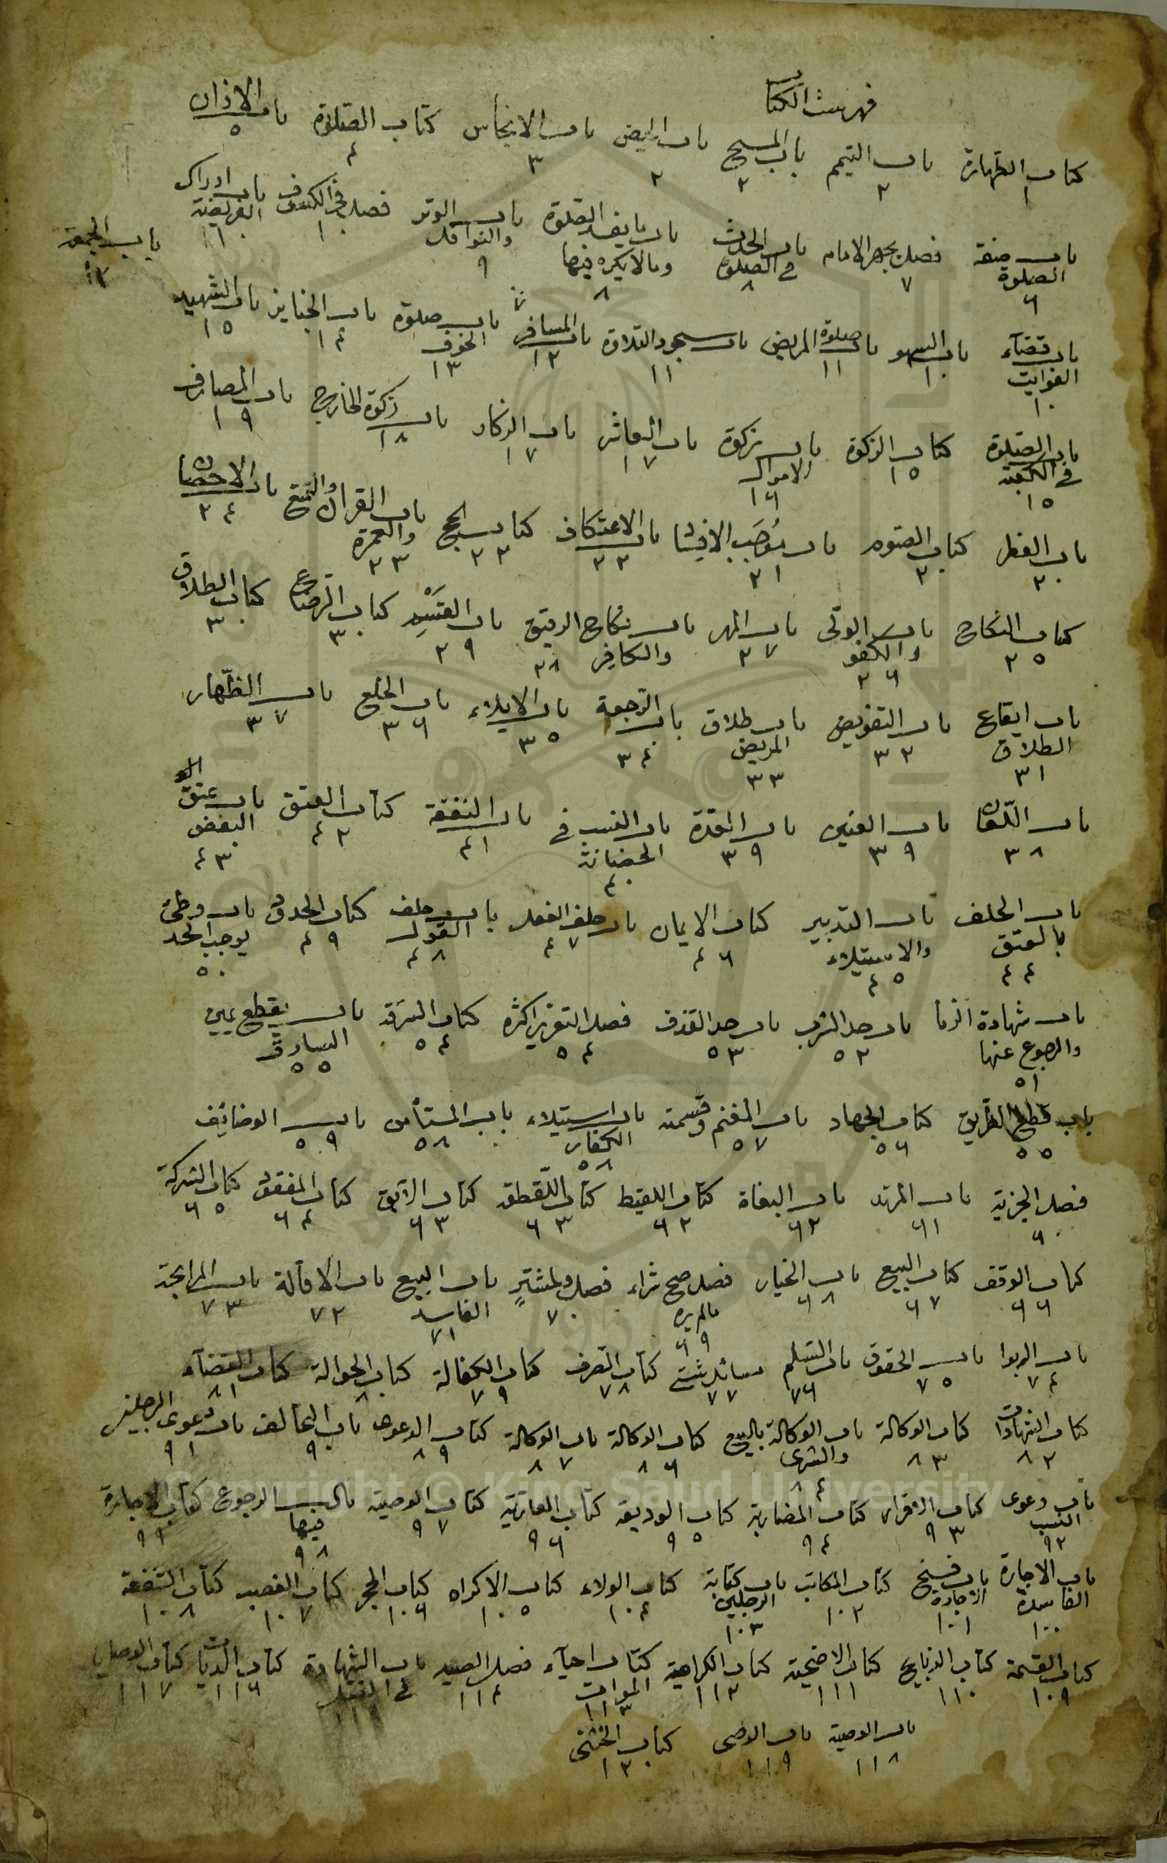 فهرست الكتاب
كتاب الطهارة باب التيمم باب المسح باب الحيض باب الانجاس كتاب الصلوة باب الاذان
١ ٢ ٢ ٢ ٣ ٤ ٥
باب صفة الصلوة فصل يجهر الامام باب الحدث في الصلوة باب ما يفسد الصلوة وما لا يكره فيها باب الوتر والنوافل فصل في الكسوف باب ادراك الفريضة
٦ ٧ ٨ ٨ ٩ ١٠ ١٠
باب قضاء الفوايت باب السهو باب صلوة المريض باب سجود التلاوة باب المسافر باب الجمعة باب صلوة الخوف باب الجنايز باب الشهيد
١٠ ١٠ ١١ ١١ ١٢ ١٢ ١٣ ١٤ ١٥
باب الصلوة في الكعبة كتاب الزكوة باب زكوة الاموال باب العاشر باب الركاز باب زكوة الخارج باب المصارف
١٥ ١٥ ١٦ ١٧ ١٧ ١٨ ١٩
باب الفطر كتاب الصوم باب موجب الافساد باب الاعتكاف كتاب الحج باب القران والتمتع والعمرة باب الاحصار
٢٠ ٢٠ ٢١ ٢٢ ٢٢ ٢٣ ٢٤
كتاب النكاح باب الولي والكفو باب المهر باب نكاح الرقيق والكافر باب القسم كتاب الرضاع كتاب الطلاق
٢٥ ٢٦ ٢٧ ٢٨ ٢٩ ٣٠ ٣٠
باب ايقاع الطلاق باب التفويض باب طلاق المريض باب الرجعة باب الايلاء باب الخلع باب الظهار
٣١ ٣٢ ٣٣ ٣٤ ٣٥ ٣٦ ٣٧
باب اللعان باب العنين باب العدة باب النسب في الحضانة باب النفقة كتاب العتق باب عتق البعض
٣٨ ٣٩ ٣٩ ٤٠ ٤١ ٤٢ ٤٣
باب الحلف بالعتق باب التدبير والاستيلاء كتاب الايمان باب حلف الفعل باب حلف القول كتاب الحدود باب وطئ يوجب الحد
٤٤ ٤٥ ٤٦ ٤٧ ٤٨ ٤٩ ٥٠
باب شهادة الزنا والرجوع عنها باب حد الشرب باب حد القذف فصل التعزير اكثره كتاب السرقة باب يقطع يمين السارق
٥١ ٥٢ ٥٣ ٥٤ ٥٤ ٥٥
باب قطع الطريق كتاب الجهاد باب المغنم وقسمته باب استيلاء الكفار باب المستأمن باب الوضائف
٥٥ ٥٦ ٥٧ ٥٨ ٥٨ ٥٩
فصل الجزية باب المرتد باب البغاة كتاب اللقيط كتاب اللقطة كتاب الآبق كتاب المفقود كتاب الشركة
٦٠ ٦١ ٦٢ ٦٢ ٦٣ ٦٣ ٦٤ ٦٥
كتاب الوقف كتاب البيع باب الخيار فصل صح شراء مالم يره فصل ولمشتر باب البيع الفاسد باب الاقالة باب المرابحة
٦٦ ٦٧ ٦٨ ٦٩ ٧٠ ٧١ ٧٢ ٧٣
باب الربوا باب الحقوق باب السلم مسائل شتى كتاب الصرف كتاب الكفالة كتاب الحوالة كتاب القضاء
٧٤ ٧٥ ٧٦ ٧٧ ٧٨ ٧٩ ٨٠ ٨١
كتاب الشهادات كتاب الوكالة باب الوكالة بالبيع والشرى كتاب الوكالة باب الوكالة كتاب الدعوى باب التحالف باب دعوى الرجلين
٨٢ ٨٣ ٨٤ ٨٦ ٨٧ ٨٩ ٩٠ ٩١
باب دعوى النسب كتاب الاقرار كتاب المضاربة كتاب الوديعة كتاب العارية كتاب الوصية باب الرجوع فيها كتاب الاجارة
٩٢ ٩٣ ٩٤ ٩٥ ٩٦ ٩٧ ٩٨ ٩٩
باب الاجارة الفاسدة باب فسخ الاجارة كتاب المكاتب باب كتابة الرجلين كتاب الولاء كتاب الاكراه كتاب الحجر كتاب الغصب كتاب الشفعة
١٠٠ ١٠١ ١٠٢ ١٠٣ ١٠٤ ١٠٥ ١٠٦ ١٠٧ ١٠٨
كتاب القسمة كتاب الذبايح كتاب الاضحية كتاب الكراهية كتاب احياء الموات فصل الصيد باب الشهادة في القتل كتاب الديات كتاب الوصايا
١٠٩ ١١٠ ١١١ ١١٢ ١١٣ ١١٤ ١١٦ ١١٧
باب الوصية باب الوصى كتاب الخنثى
١١٨ ١١٩ ١٢٠
Copyright © King Saud University